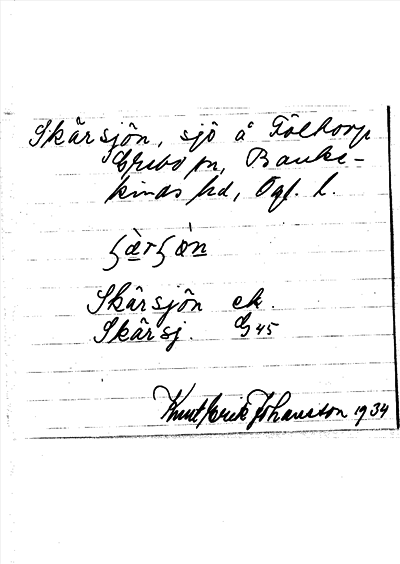 Skärsjön, sjö å Föltorp
Grebo sn, Banke-
kinds hd, Ögl. l.
Skärsjön ek.
Skärsj. G 45
Knut Erik Johansson 1934